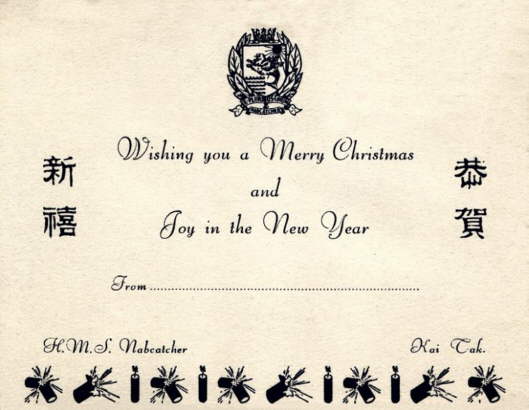 Wishing you a Merry Christmas
and
Joy in the New Year
恭賀
新禧
From
H.M.S. Nabcatcher
Kai Tak.